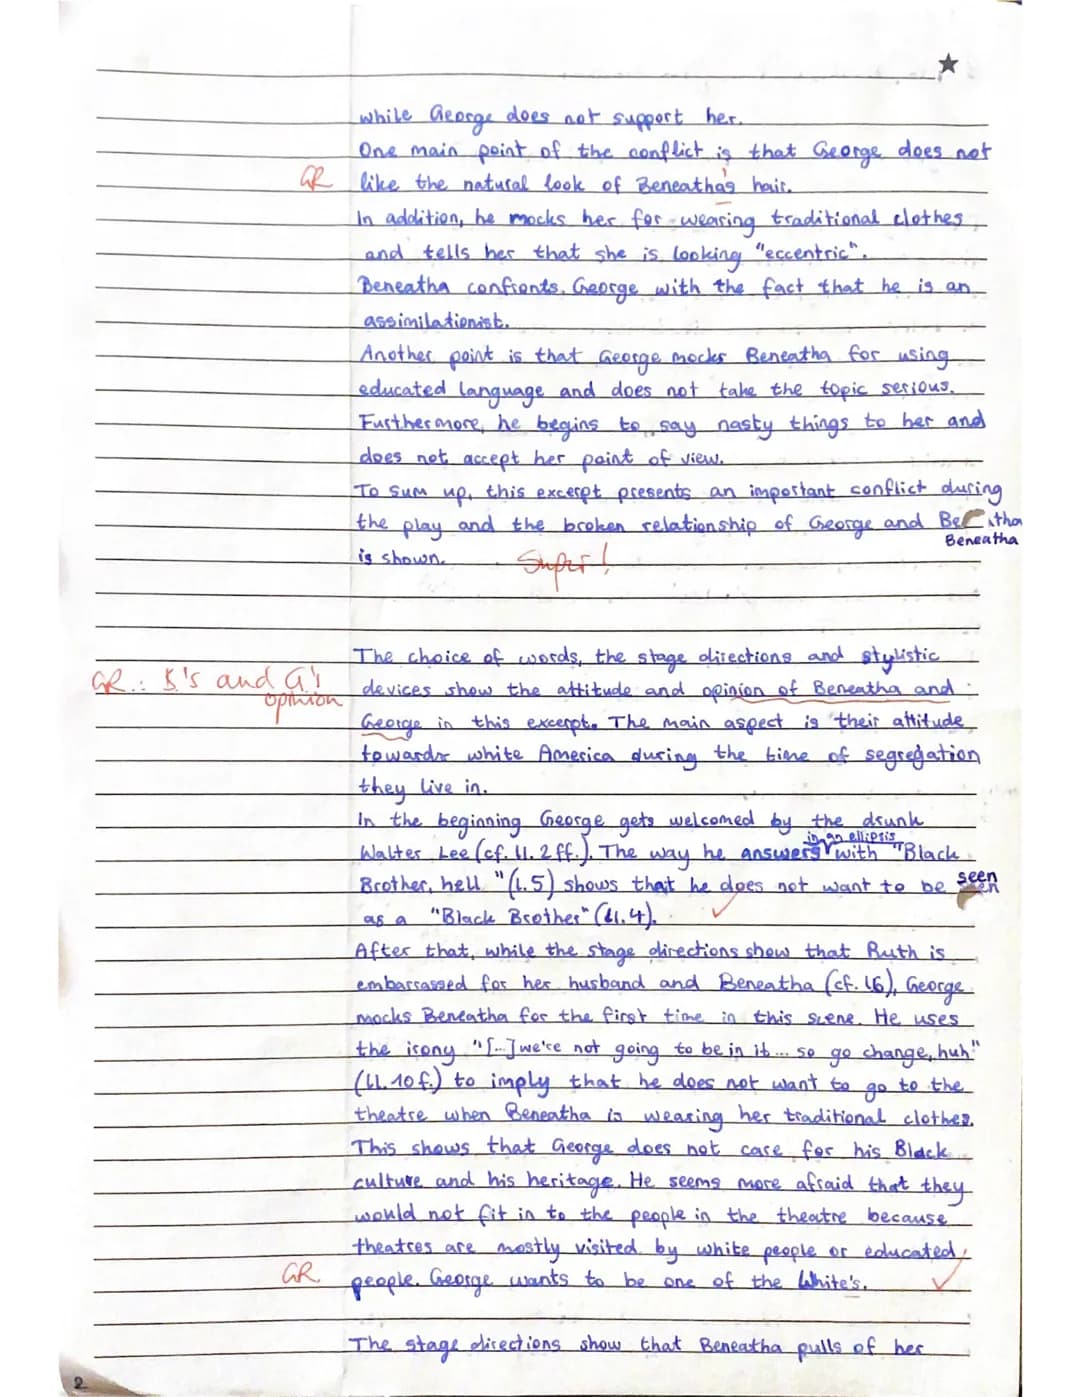 while George does not support her.
One main point of the conflict is that George does not
GR like the natural look of Beneatha's hair.
In addition, he mocks her for wearing traditional clothes
and tells her that she is looking "eccentric".
Beneatha confronts George with the fact that he is an
assimilationist.
Another point is that George mocks Beneatha for using
educated language and does not take the topic serious.
Furthermore, he begins to say nasty things to her and
does not accept her point of view.
To sum up, this excerpt presents an important conflict during
the play and the broken relationship of George and
Beneatha
is shown. Super!
The choice of words, the stage directions and stylistic
GR.: B's and G's opinion
devices show the attitude and opinion of Beneatha and
George in this excerpt. The main aspect is their attitude
towards white America during the time of segregation
they live in.
In the beginning George gets welcomed by the drunk
in an ellipsis
Walter Lee (cf. ll. 2 ff.). The way he answers with "Black
Brother, hell" (l. 5) shows that he does not want to be seen
as a "Black Brother" (l. 4).
After that, while the stage directions show that Ruth is
embarrassed for her husband and Beneatha (cf. l6), George
mocks Beneatha for the first time in this scene. He uses
the irony "[...] we're not going to be in it... so go change, huh"
(ll. 10 f.) to imply that he does not want to go to the
theatre when Beneatha is wearing her traditional clothes.
This shows that George does not care for his Black
culture and his heritage. He seems more afraid that they
would not fit in to the people in the theatre because
theatres are mostly visited by white people or educated
GR people. George wants to be one of the White's.
The stage directions show that Beneatha pulls of her
2